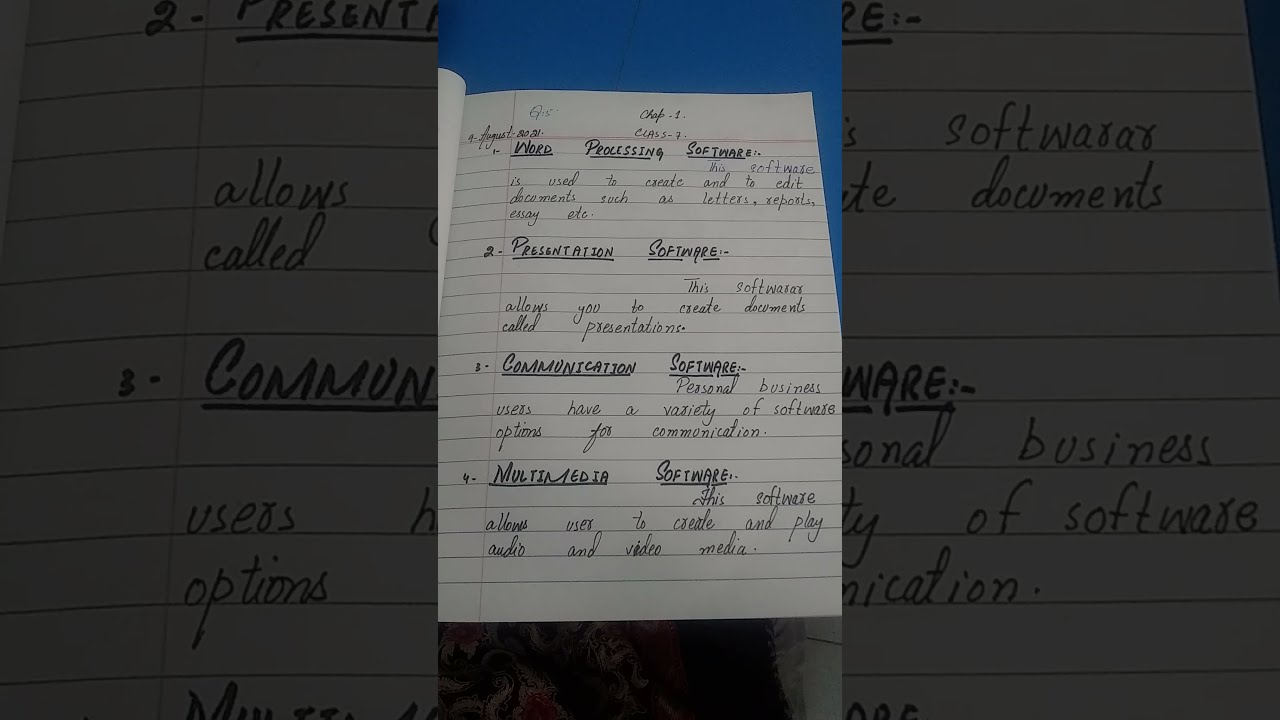 Q:5:
Chap-1.
9-August-2021.
CLASS-7.
1- WORD PROCESSING SOFTWARE:-
This software
is used to create and to edit
documents such as letters, reports,
essay etc.
2- PRESENTATION SOFTWARE:-
This softwarar
allows you to create documents
called presentations.
3- COMMUNICATION SOFTWARE:-
Personal business
users have a variety of software
options for communication.
4- MULTIMEDIA SOFTWARE:-
This software
allows user to create and play
audio and video media.